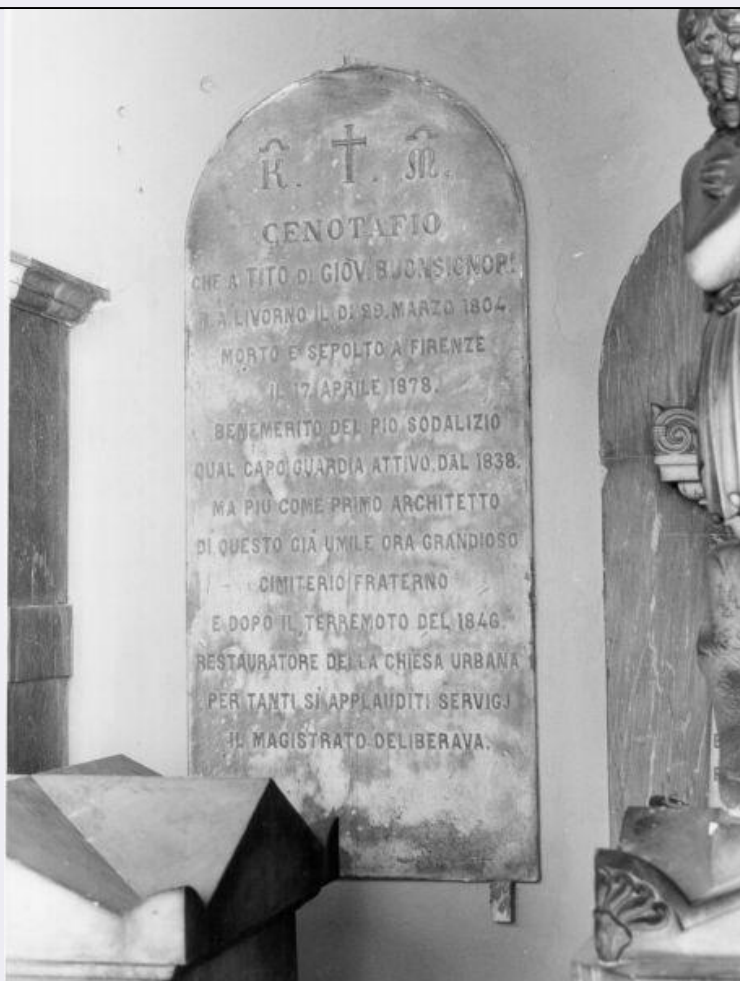 R. † M.
CENOTAFIO
CHE A TITO DI GIOV. BUONSIGNORI
N. A LIVORNO IL DI 29. MARZO 1804
MORTO E SEPOLTO A FIRENZE
IL 17 APRILE 1878.
BENEMERITO DEL PIO SODALIZIO
QUAL CAPO GUARDIA ATTIVO DAL 1838.
MA PIÙ COME PRIMO ARCHITETTO
DI QUESTO GIÀ UMILE ORA GRANDIOSO
CIMITERIO FRATERNO
E DOPO IL TERREMOTO DEL 1846.
RESTAURATORE DELLA CHIESA URBANA
PER TANTI SÌ APPLAUDITI SERVIGJ
IL MAGISTRATO DELIBERAVA.